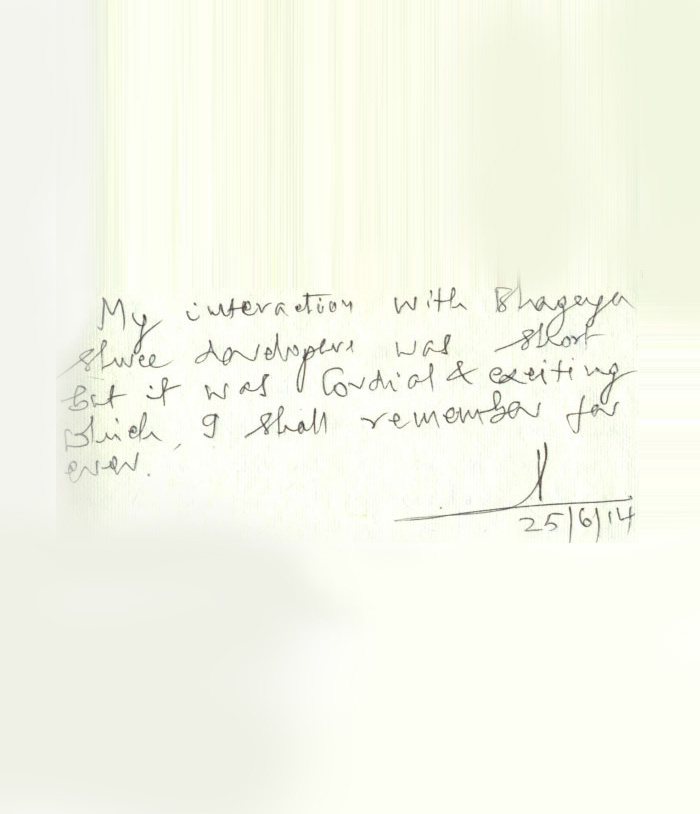 My interaction with Bhageya
shree developers was short
but it was Cordial & exciting
which, I shall remember for
ever.
25/6/14